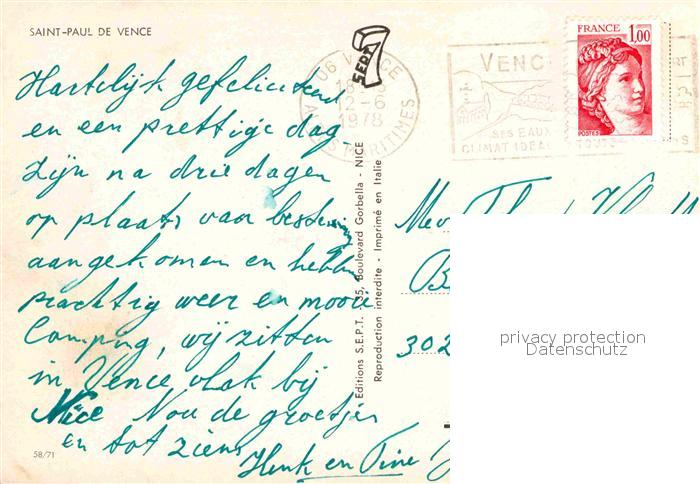 SAINT-PAUL DE VENCE
Hartelijk gefeliciteerd
en een prettige dag
Zijn na drie dagen
op plaats van bestemming
aangekomen en hebben
prachtig weer en mooie
Camping, wij zitten
in Vence vlak bij
Nice Nou de groetjes
en tot ziens
Henk en Tine
58/71
SEPT
06 VENCE
12-6
1978
ALPES MARITIMES
VENC
SES EAUX
CLIMAT IDEAL
FRANCE
1,00
POSTES
Editions S.E.P.T. - 35, Boulevard Gorbella - NICE
Reproduction interdite - Imprimé en Italie
Mev
302
privacy protection
Datenschutz